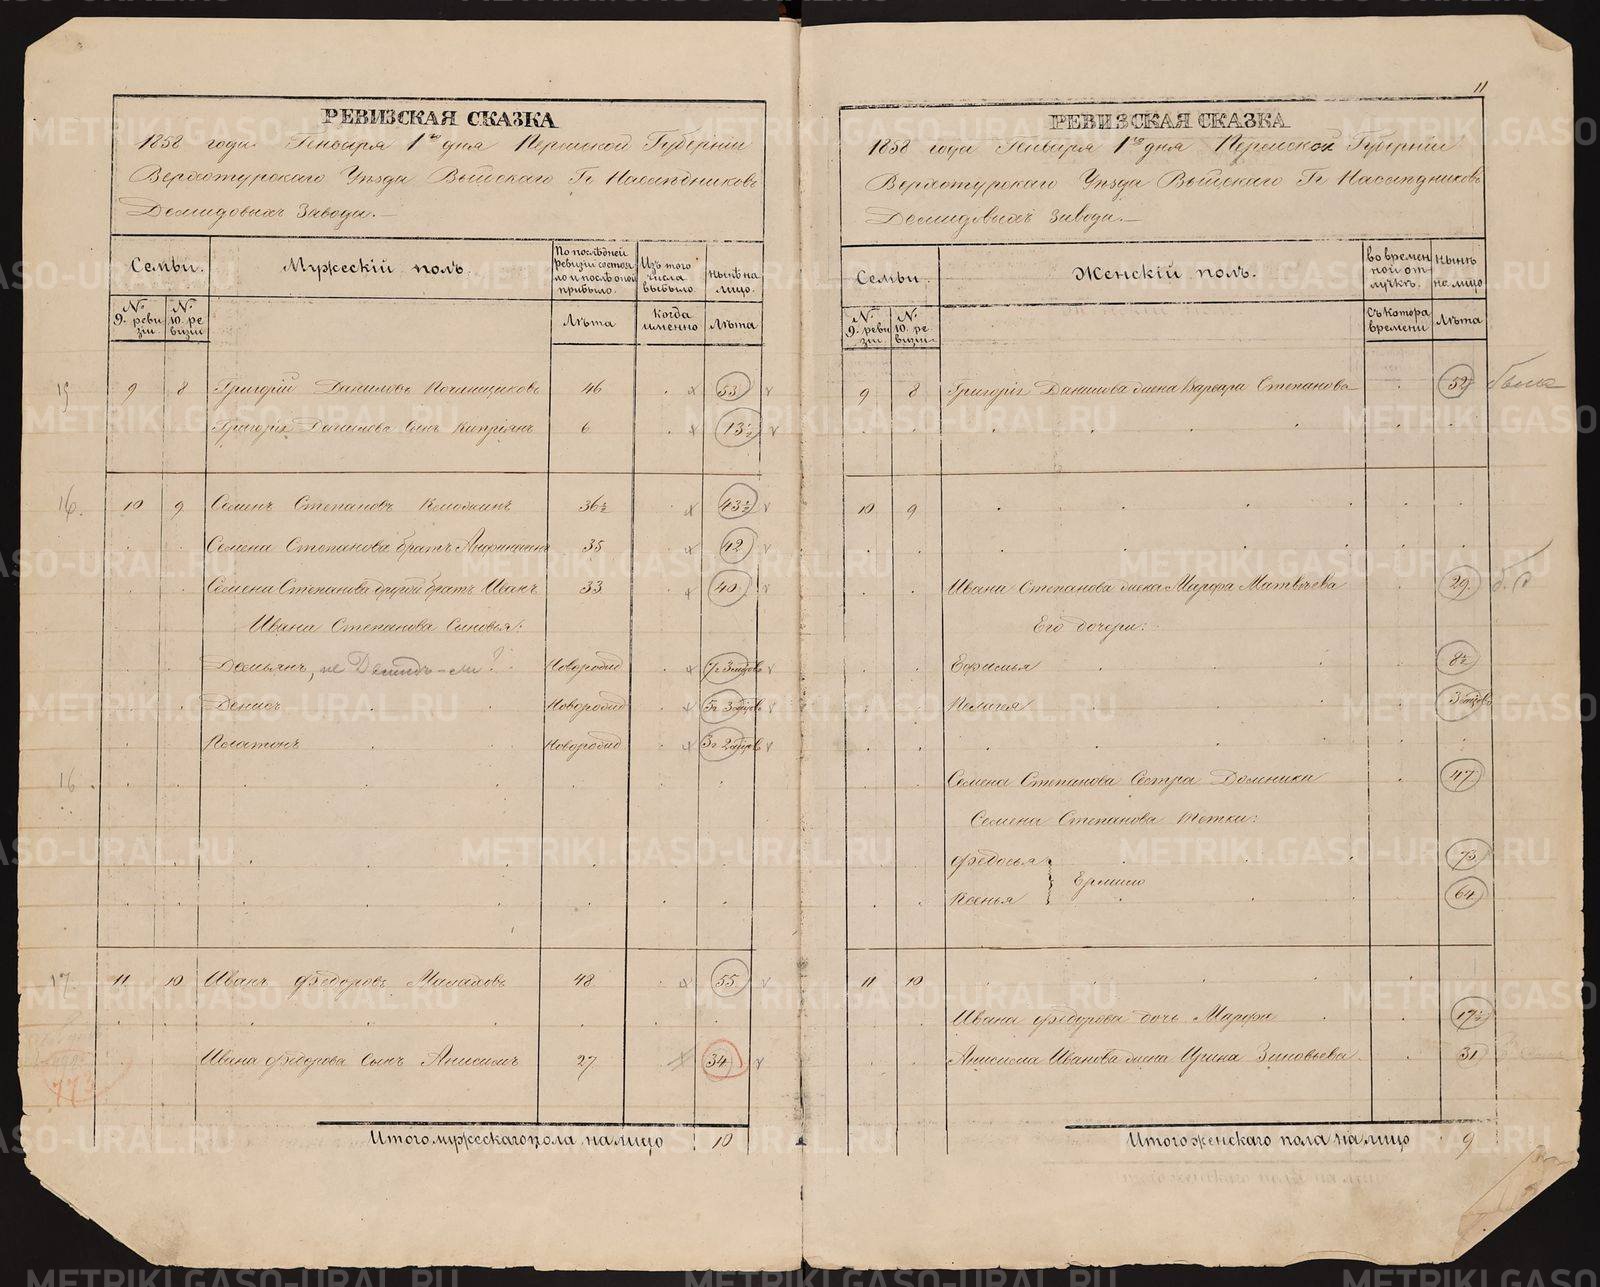 11
РЕВИЗСКАЯ СКАЗКА
1858 года Генваря 1го дня Пермской Губернии
Верхотурскаго Уѣзда Выйскаго Гг Наслѣдниковъ
Демидовыхъ Завода.—
Семьи. Мужескій полъ. По послѣдней ревизіи состояло и послѣ оной прибыло. Изъ того числа выбыло. Нынѣ на лицо.
№ 9. ревизіи. № 10. ревизіи Лѣта Когда именно Лѣта
15 9 8 Григорій Даниловъ 46 53
Григорія Данилова сынъ Кипріянъ 6 13½
16. 10 9 Семенъ Степановъ 36½ 43½
Семена Степанова братъ 35 42
Семена Степанова другой братъ Иванъ 33 40
Ивана Степанова Сыновья:
Демьянъ, не Демидъ-ли? Новорожд 7г 3мѣсяцв
Денисъ Новорожд 5г 3мѣсяцв
Платонъ Новорожд 3г 2мѣсяцв
16
17. 11 10 Иванъ Федоровъ Малаховъ 48 55
Ивана Федорова сынъ Анисимъ 27 34
773
Итого мужескаго пола на лицо 10
РЕВИЗСКАЯ СКАЗКА
1858 года Января 1го дня Пермской Губерніи
Верхотурскаго Уѣзда Выйскаго Гг Наслѣдниковъ
Демидовыхъ завода.—
Семьи. Женскій полъ. во временной отлучкѣ. Нынѣ на лицо
№ 9. ревизіи. № 10. ревизіи. Съ котора времени Лѣта
9 8 Григорія Данилова жена Варвара Степанова 52
10 9
Ивана Степанова жена Марфа Матвѣева 29
Его дочери:
Ефимья 8½
Пелагея 3 мѣсяцв
Семена Степанова Сестра Домника 47
Семена Степанова тетки:
Федосья 73
Ермило
Ксенья 64
11 10
Ивана Федорова дочь Марфа 17½
Анисима Иванова жена Ирина Зиновьева 31
Итого женскаго пола на лицо 9
METRIKI.GASO-URAL.RU